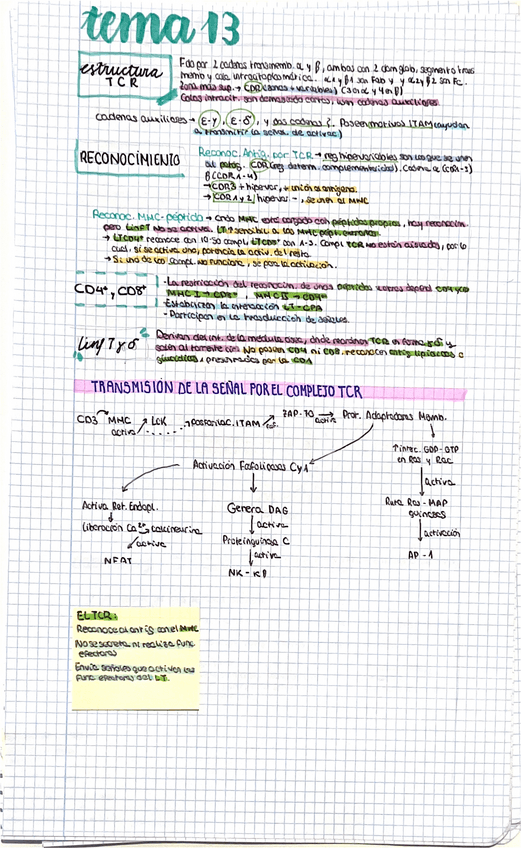 tema 13
estructura TCR
Fdo por 2 cadenas transmemb. α y β, ambas con 2 dom glob, segmento trans
memb y cola intracitoplasmática. α1 y β1 son Fab y α2 y β2 son Fc.
Zona más sup. → CDR (zonas + variables) (3 en α y 4 en β)
Colas intracit. son demasiado cortas, usan cadenas auxiliares.
cadenas auxiliares → ε-γ, ε-δ, y dos cadenas ζ. Poseen motivos ITAM (ayudan
a transmitir la señal de activac)
RECONOCIMIENTO
Reconoc. Antíg. por TCR → reg hipervariables son las que se unen
al patóg. CDR (reg. determ. complementariedad). Cadena α (CDR 1-3)
β (CDR 1-4)
→ CDR3 + hipervar, + unión al antígeno.
→ CDR 1 y 2 / hipervar -, se unen al MHC
Reconoc. MHC-péptido → Cndo MHC está cargado con péptidos propios, hay reconocim.
pero LinfT no se activa. LT ↑ sensibil. a los MHC pépt. extraños.
→ LTCD4+ reconoce con 10-50 compl, LTCD8+ con 1-3. Compl TCR no están aislados, por lo
cual si se activa uno, potencia la activ. del resto.
→ Si uno de los compl. no funciona, se para la activación.
CD4+ y CD8+
- La restricción del reconocim. de unos péptidos u otros depend CD4 y CD8
MHC I → CD8+, MHC II → CD4+
- Estabilizan la interacción LT-CPA
- Participan en la trasducción de señales.
Linf T γδ
Derivan del int. de la médula ósea, donde reordenan TCR en forma γδ y
salen al torrente circ. No poseen CD4 ni CD8. reconocen antíg lipídicos o
glucídicos, presentados por la CD1
TRANSMISIÓN DE LA SEÑAL POR EL COMPLEJO TCR
CD3 MHC activa LCK → fosforilac. ITAM ZAP-70 activa Prot. Adaptadoras Memb.
↑ interc. GDP-GTP
en Ras y Rac
activa
Ruta Ras-MAP
quinasas
activación
AP-1
Activación Fosfolipasa Cγ1
Activa Ret. Endopl.
Liberación Ca2+ → calcineurina
activa
NFAT
Genera DAG
activa
Proteinquinasa C
activa
NK-κβ
EL TCR:
Reconoce al antíg con el MHC
No se secreta ni realiza func
efectoras
Envía señales que activan las
func efectoras del LT.